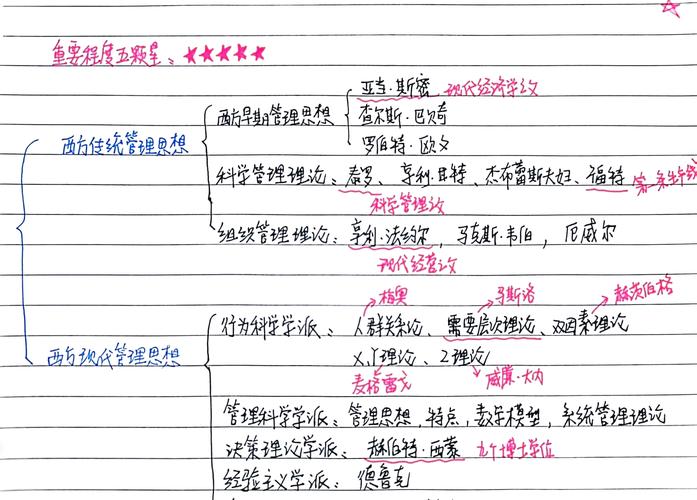 重要程度五颗星：★★★★★
亚当·斯密 现代经济学之父
西方早期管理思想 查尔斯·巴贝奇
罗伯特·欧文
西方传统管理思想
科学管理理论：泰罗、亨利·甘特、杰布雷斯夫妇、福特 第一条生产线
科学管理之父
组织管理理论：亨利·法约尔，马克斯·韦伯，厄威尔
现代经营之父
梅奥 马斯洛 赫茨伯格
行为科学学派：人群关系论、需要层次理论、双因素理论
西方现代管理思想
X,Y理论、Z理论
麦格雷戈 威廉·大内
管理科学学派：管理思想，特点，数学模型，系统管理理论
决策理论学派：赫伯特·西蒙 九个博士学位
经验主义学派：德鲁克